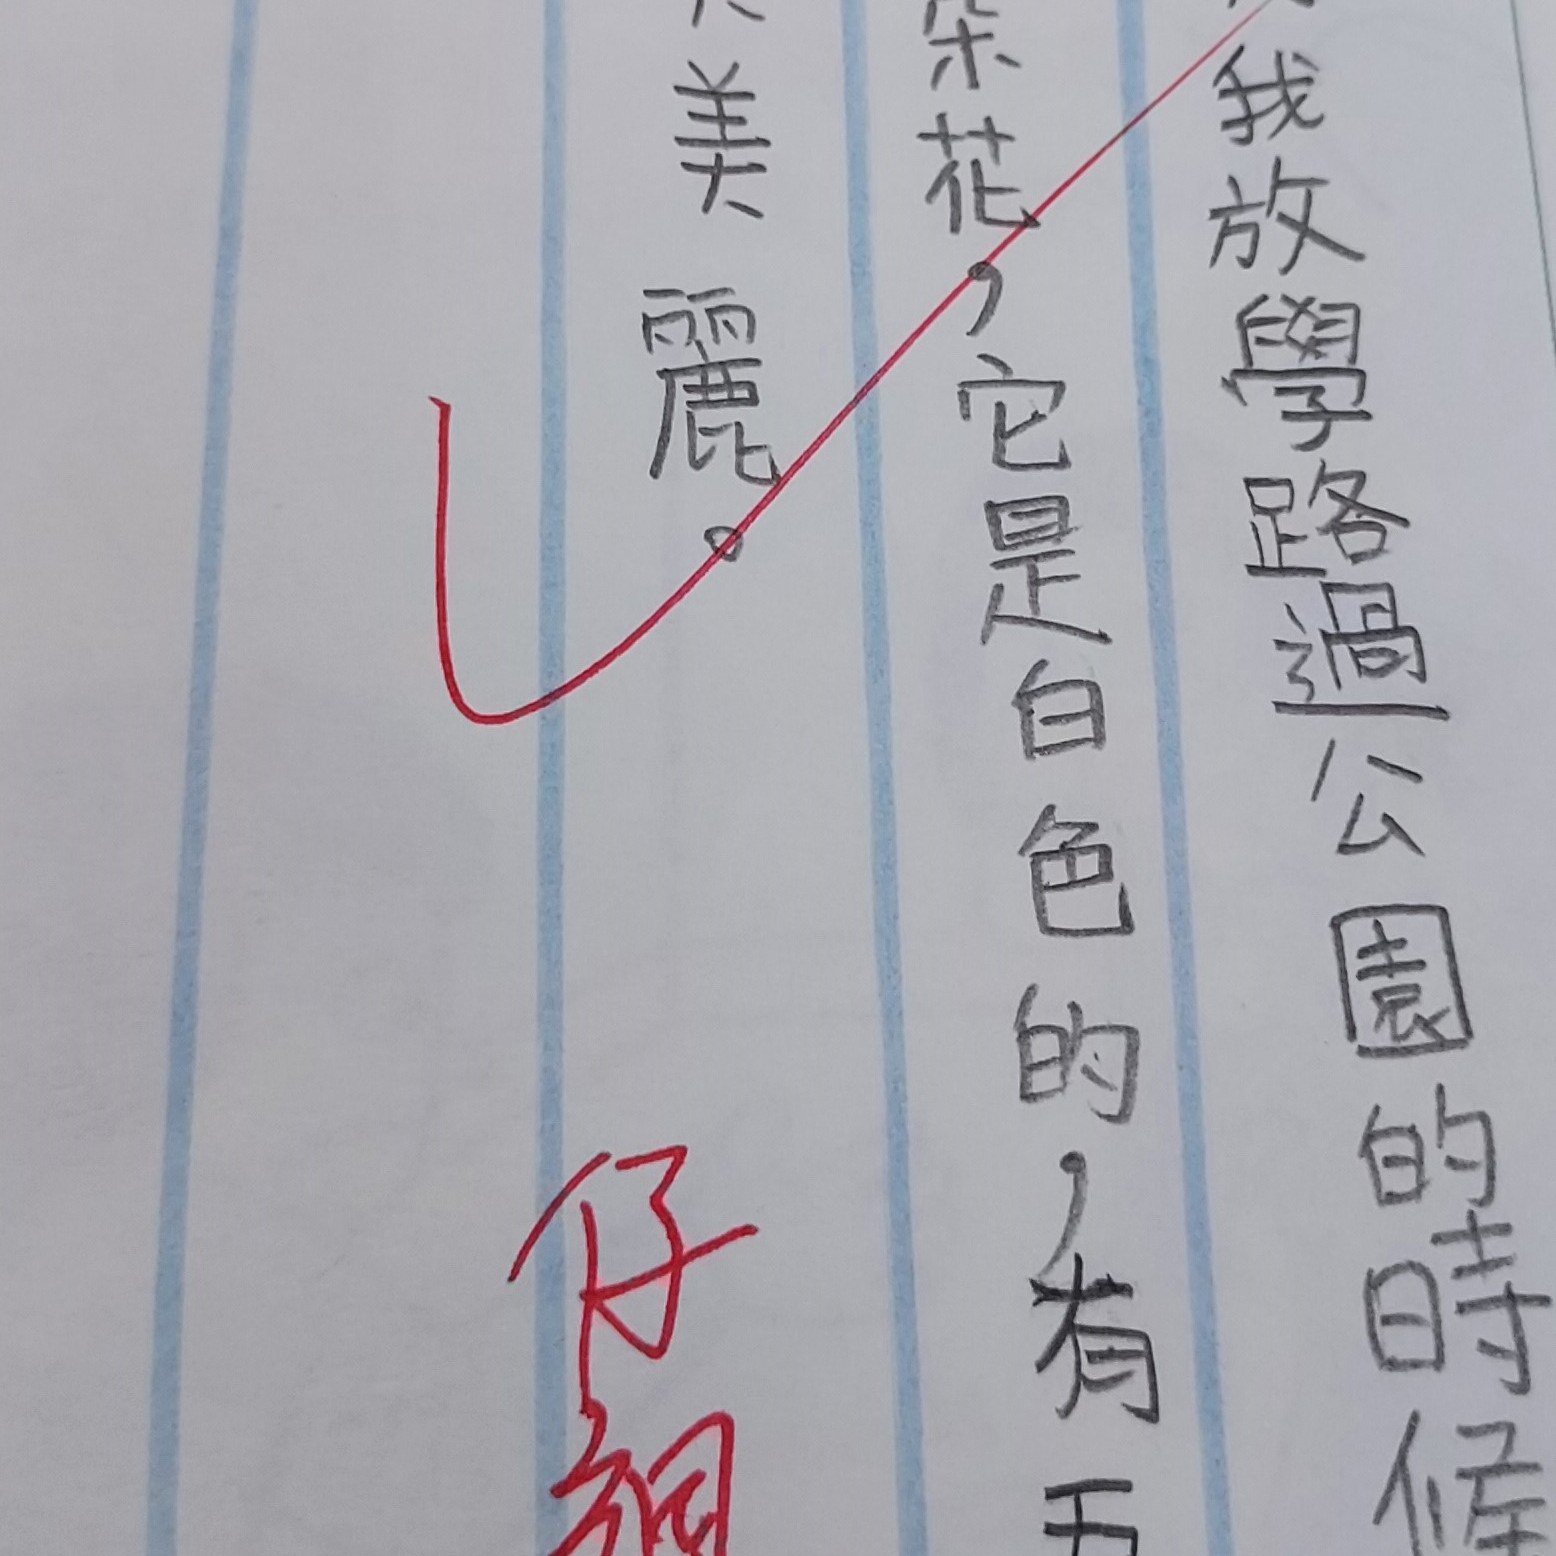 我放學路過公園的時候
朵花，它是白色的，有五
美麗。
仔細